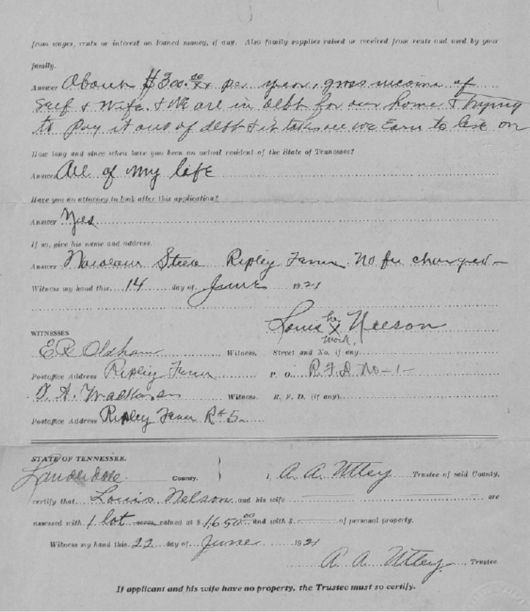 from wages, rents or interest on loaned money, if any. Also family supplies raised or received from rents and used by your
family.
Answer About $300.00 per year, gross income of
Self & Wife. & We are in debt for our home & trying
to pay it out of debt & it takes all we Earn to live on
How long and since when have you been an actual resident of the State of Tennessee?
Answer All of my life
Have you an attorney to look after this application?
Answer Yes
If so, give his name and address.
Answer Steele Ripley Tenn. No fee charged
Witness my hand this 14 day of June 1921
Louis his X mark Nelson
WITNESSES
E.R. Oldham Witness. Street and No. if any
Postoffice Address Ripley Tenn P. O. R.F.D No-1-
Witness. R. F. D. (if any)
Postoffice Address Ripley Tenn R#5
STATE OF TENNESSEE.
Lauderdale County. I, A. A. Utley Trustee of said County,
certify that Louis Nelson and his wife are
assessed with 1 lot acres valued at $ 1650.00 and with $ of personal property.
Witness my hand this 22 day of June 1921
A. A. Utley Trustee
If applicant and his wife have no property, the Trustee must so certify.